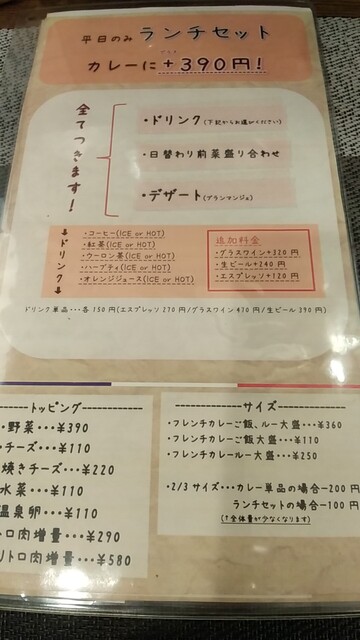 平日のみ ランチセット
カレーに +390円!
全てつきます!
・ドリンク(下記からお選びください)
・日替わり前菜盛り合わせ
・デザート(ブランマンジェ)
ドリンク
・コーヒー(ICE or HOT)
・紅茶(ICE or HOT)
・ウーロン茶(ICE or HOT)
・ハーブティ(ICE or HOT)
・オレンジジュース(ICE or HOT)
追加料金
・グラスワイン+320円
・生ビール+240円
・エスプレッソ+120円
ドリンク単品・・・各150円(エスプレッソ270円/グラスワイン470円/生ビール390円)
トッピング
・野菜・・・¥390
・チーズ・・・¥110
焼きチーズ・・・¥220
水菜・・・¥110
温泉卵・・・¥110
トロ肉増量・・・¥290
トロ肉増量・・・¥580
サイズ
・フレンチカレーご飯、ルー大盛・・・¥360
・フレンチカレーご飯大盛・・・¥110
・フレンチカレールー大盛・・・¥250
・2/3サイズ・・・カレー単品の場合-200円
ランチセットの場合-100円
(↑全体量が少なくなります)